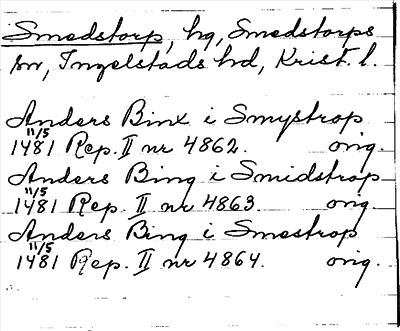 Smedstorp, hg, Smedstorps
sn, Ingelstads hd, Krist. l.
Anders Binx i Smystrop
11/5
1481 Rep. II nr 4862. orig.
Anders Bing i Smidstrop
11/5
1481 Rep. II nr 4863. orig.
Anders Bing i Smestrop
11/5
1481 Rep. II nr 4864. orig.